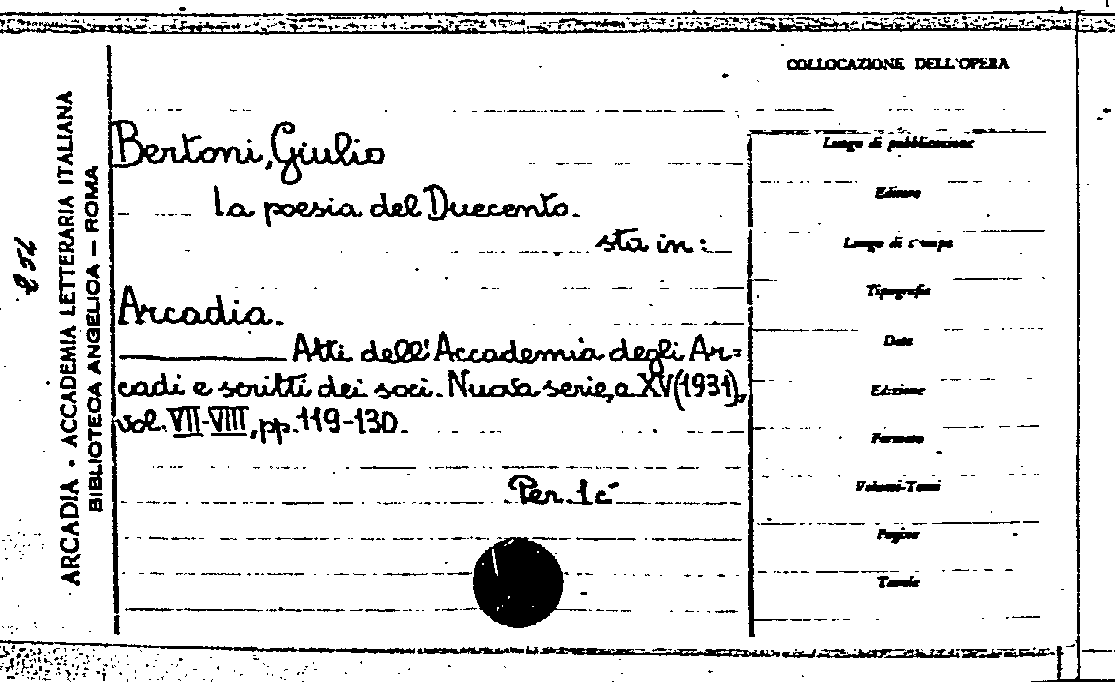 COLLOCAZIONE DELL'OPERA
ARCADIA - ACCADEMIA LETTERARIA ITALIANA
BIBLIOTECA ANGELICA — ROMA
Bertoni, Giulio
La poesia del Duecento.
sta in:
Arcadia.
Atti dell'Accademia degli Ar=
cadi e scritti dei soci. Nuova serie, a. XV (1931),
vol. VII-VIII, pp. 119-130.
Per. 1c
Luogo di pubblicazione
Editore
Luogo di stampa
Tipografia
Data
Edizione
Formato
Volumi-Tomi
Pagine
Tavole